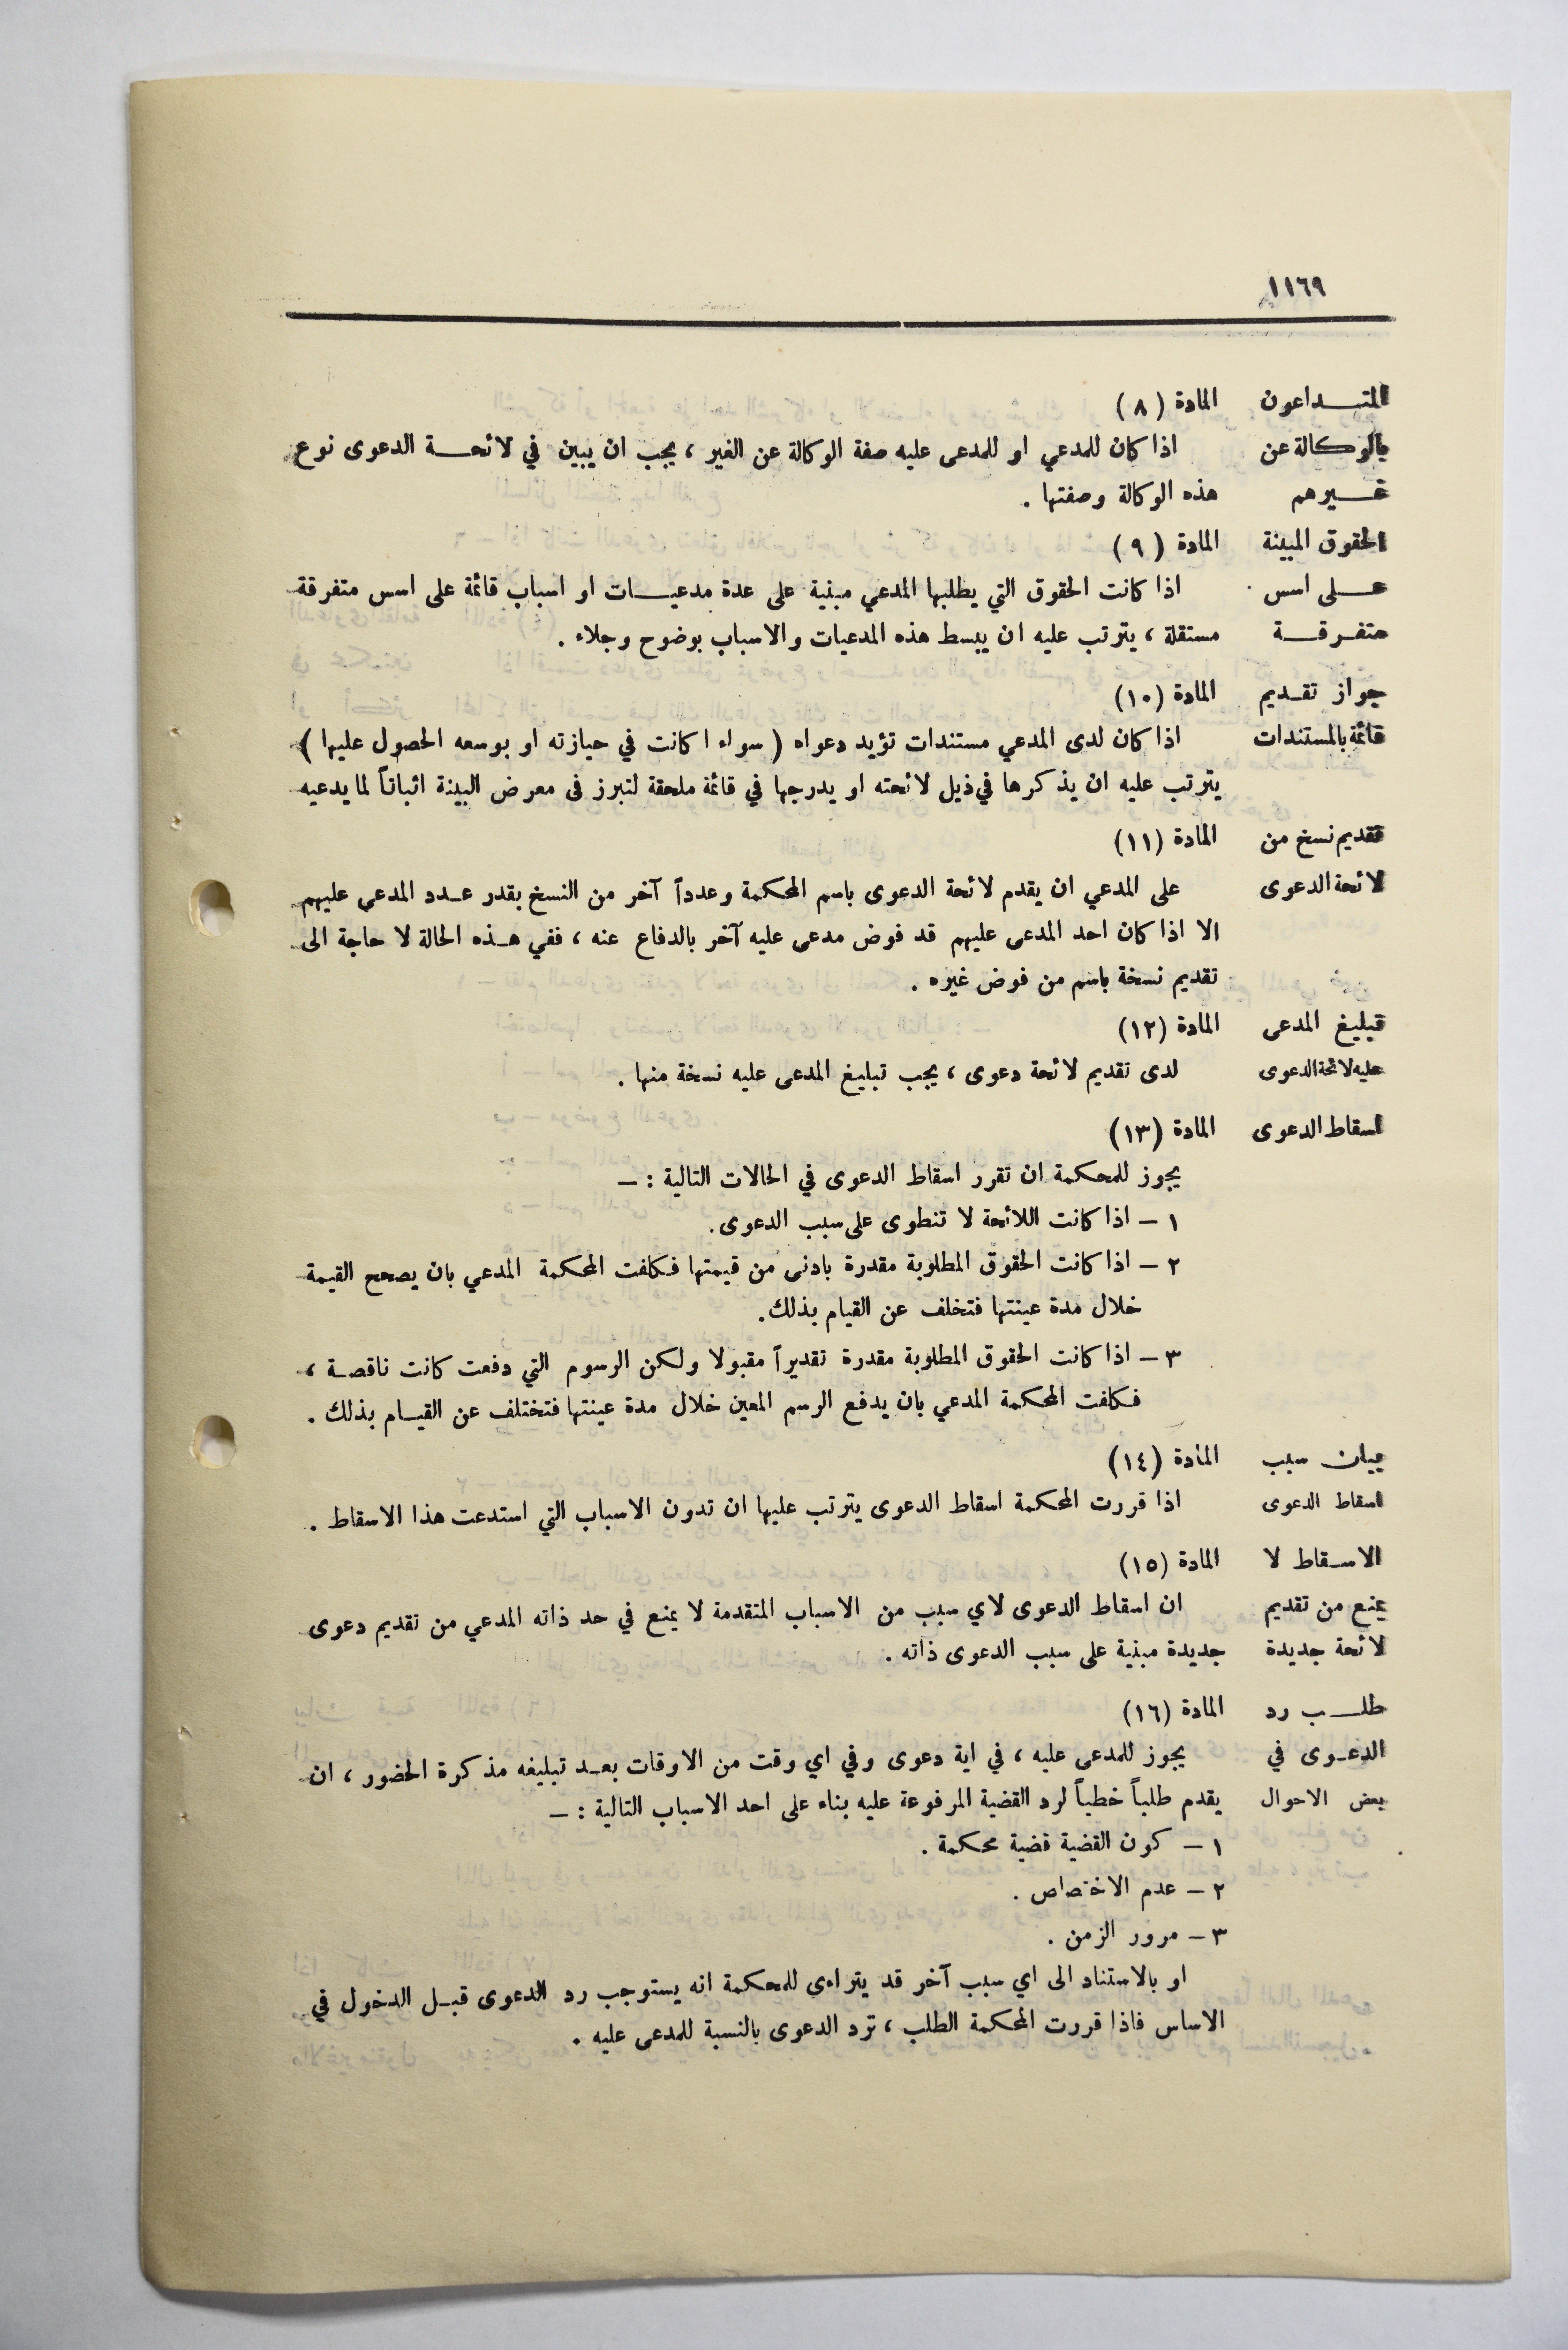 ١١٦٩
المتداعون المادة (٨)
بالوكالة عن اذا كان للمدعي او للمدعى عليه صفة الوكالة عن الغير ، يجب ان يبين في لائحة الدعوى نوع
غيرهم هذه الوكالة وصفتها .
الحقوق المبينة المادة (٩)
على اسس اذا كانت الحقوق التي يطلبها المدعي مبنية على عدة مدعيات او اسباب قائمة على اسس متفرقة
متفرقة مستقلة ، يترتب عليه ان يبسط هذه المدعيات والاسباب بوضوح وجلاء .
جواز تقديم المادة (١٠)
قائمة بالمستندات اذا كان لدى المدعي مستندات تؤيد دعواه ( سواء ا كانت في حيازته او بوسعه الحصول عليها )
يترتب عليه ان يذكرها في ذيل لائحته او يدرجها في قائمة ملحقة لتبرز في معرض البينة اثباتاً لما يدعيه
تقديم نسخ من المادة (١١)
لائحة الدعوى على المدعي ان يقدم لائحة الدعوى باسم المحكمة وعدداً آخر من النسخ بقدر عدد المدعي عليهم
الا اذا كان احد المدعى عليهم قد فوض مدعى عليه آخر بالدفاع عنه ، ففي هذه الحالة لا حاجة الى
تقديم نسخة باسم من فوض غيره .
تبليغ المدعى المادة (١٢)
عليه لائحة الدعوى لدى تقديم لائحة دعوى ، يجب تبليغ المدعى عليه نسخة منها .
اسقاط الدعوى المادة (١٣)
يجوز للمحكمة ان تقرر اسقاط الدعوى في الحالات التالية : –
١ – اذا كانت اللائحة لا تنطوى على سبب الدعوى.
٢ – اذا كانت الحقوق المطلوبة مقدرة بادنى من قيمتها فكلفت المحكمة المدعي بان يصحح القيمة
خلال مدة عينتها فتخلف عن القيام بذلك.
٣ – اذا كانت الحقوق المطلوبة مقدرة تقديراً مقبولا ولكن الرسوم التي دفعت كانت ناقصة ،
فكلفت المحكمة المدعي بان يدفع الرسم المعين خلال مدة عينتها فتختلف عن القيام بذلك .
بيان سبب المادة (١٤)
اسقاط الدعوى اذا قررت المحكمة اسقاط الدعوى يترتب عليها ان تدون الاسباب التي استدعت هذا الاسقاط .
الاسقاط لا المادة (١٥)
يمنع من تقديم ان اسقاط الدعوى لاي سبب من الاسباب المتقدمة لا يمنع في حد ذاته المدعي من تقديم دعوى
لائحة جديدة جديدة مبنية على سبب الدعوى ذاته .
طلب رد المادة (١٦)
الدعوى في يجوز للمدعى عليه ، في اية دعوى وفي اي وقت من الاوقات بعد تبليغه مذكرة الحضور ، ان
بعض الاحوال يقدم طلباً خطياً لرد القضية المرفوعة عليه بناء على احد الاسباب التالية : –
١ – كون القضية قضية محكمة .
٢ – عدم الاختصاص .
٣ – مرور الزمن .
او بالاستناد الى اي سبب آخر قد يتراءى للمحكمة انه يستوجب رد الدعوى قبل الدخول في
الاساس فاذا قررت المحكمة الطلب ، ترد الدعوى بالنسبة للمدعى عليه .